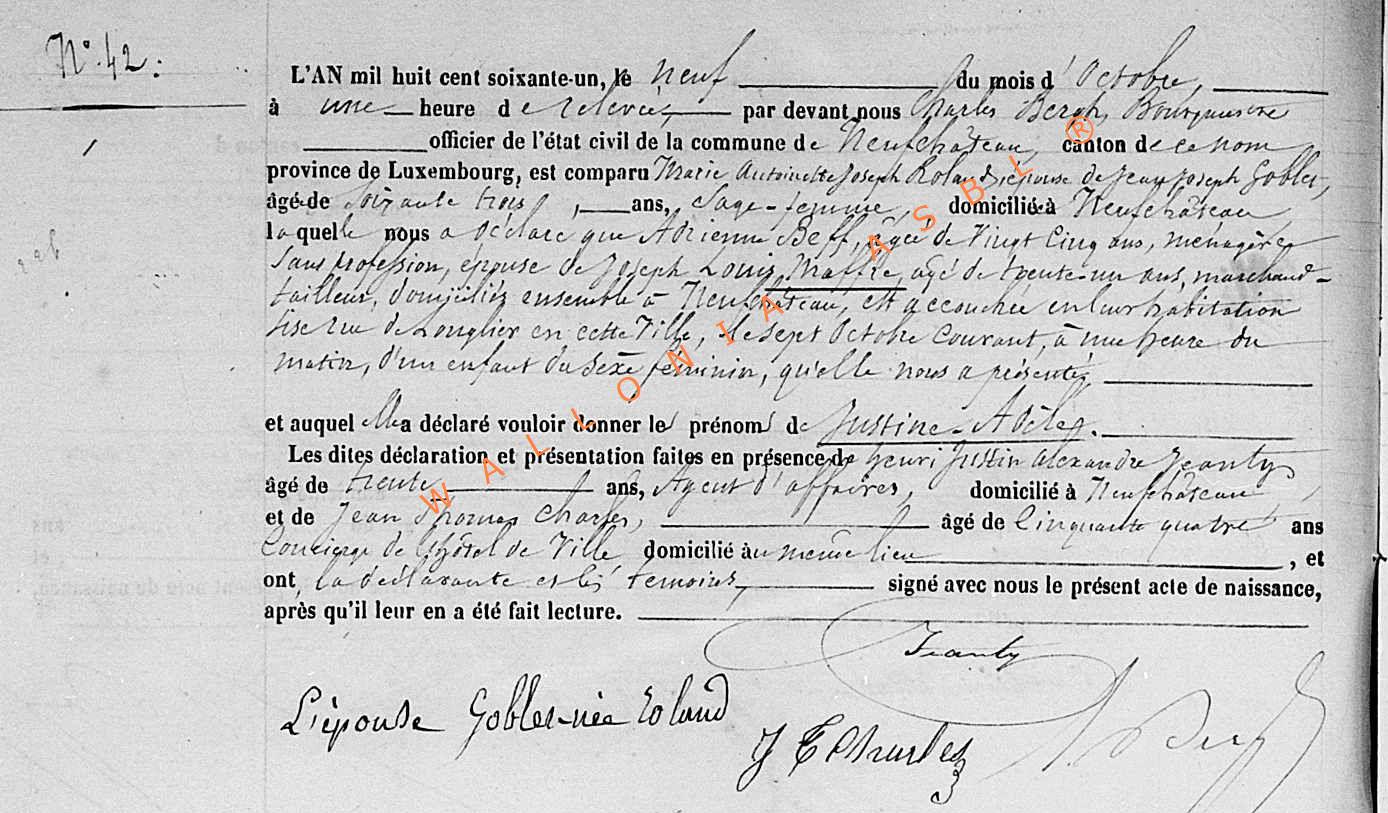 N° 42.
L'AN mil huit cent soixante-un, le neuf du mois d'Octobre,
à une heure de relevée, par devant nous Charles Bergh, Bourgmestre
officier de l'état civil de la commune de Neufchâteau, canton de ce nom
province de Luxembourg, est comparu Marie Antoinette Joseph Roland, épouse de Jean Joseph Goblet,
âgée de soixante trois, ans, Sage-femme, domiciliée à Neufchâteau
laquelle nous a déclaré que Adrienne Beff, âgée de Vingt Cinq ans, ménagère
Sans profession, épouse de Joseph Louis Maffre, agé de trente-un ans, marchand-
tailleur, domiciliés ensemble à Neufchâteau, est accouchée en leur habitation
sise rue de Longlier en cette Ville, le sept Octobre courant, à une heure du
matin, d'un enfant du sexe féminin, qu'elle nous a présenté,
et auquel elle a déclaré vouloir donner les prénoms de Justine-Adèle.
Les dites déclaration et présentation faites en présence de Henri Justin Alexandre Jeanty
âgé de trente ans, Agent d'affaires, domicilié à Neufchâteau
et de Jean Thomas Charles, âgé de Cinquante quatre ans
Concierge de l'hôtel de Ville, domicilié au même lieu, et
ont, la déclarante et les témoins, signé avec nous le présent acte de naissance,
après qu'il leur en a été fait lecture.
Jeanty
L'épouse Goblet née Roland
J T Charles
WALLONIA ASBL ®